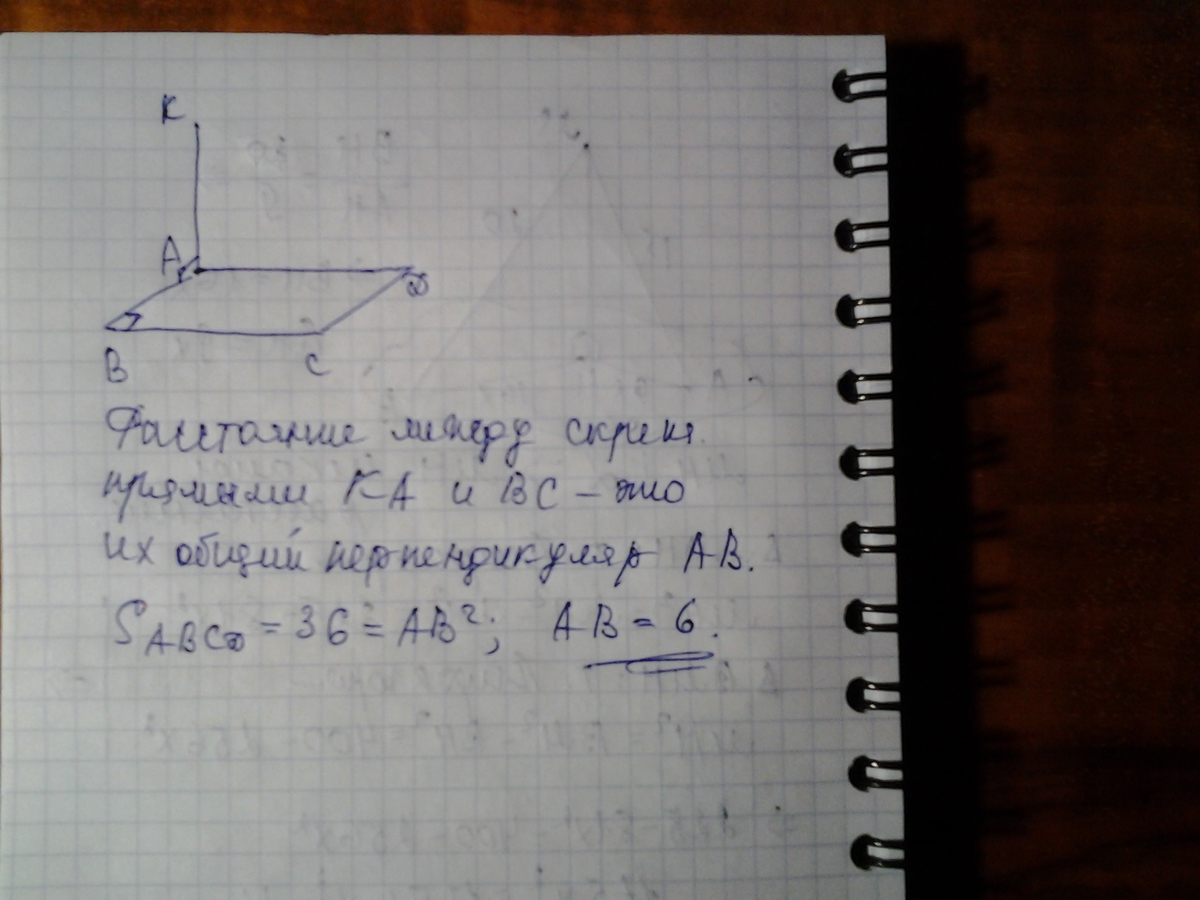 K
A
D
B
C
Расстояние между скрещ.
прямыми KA и BC – это
их общий перпендикуляр AB.
S_ABCD = 36 = AB²; AB = 6.